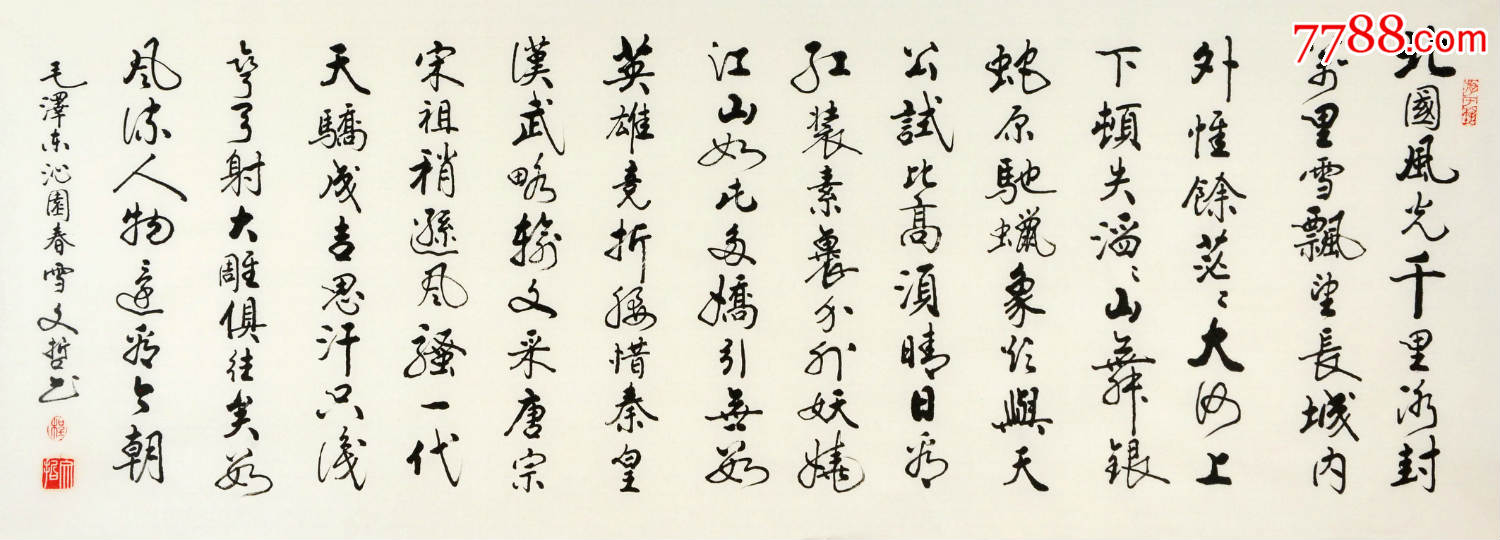 7788.com
北國風光千里冰封
萬里雪飄望長城內
外惟餘茫〻大河上
下頓失滔〻山舞銀
蛇原馳蠟象欲與天
公試比高須晴日看
紅裝素裹分外妖嬈
江山如此多嬌引無數
英雄竞折腰惜秦皇
漢武略輸文采唐宗
宋祖稍遜風騷一代
天驕成吉思汗只識
彎弓射大雕俱往矣數
風流人物還看今朝
毛澤东沁園春雪文哲书